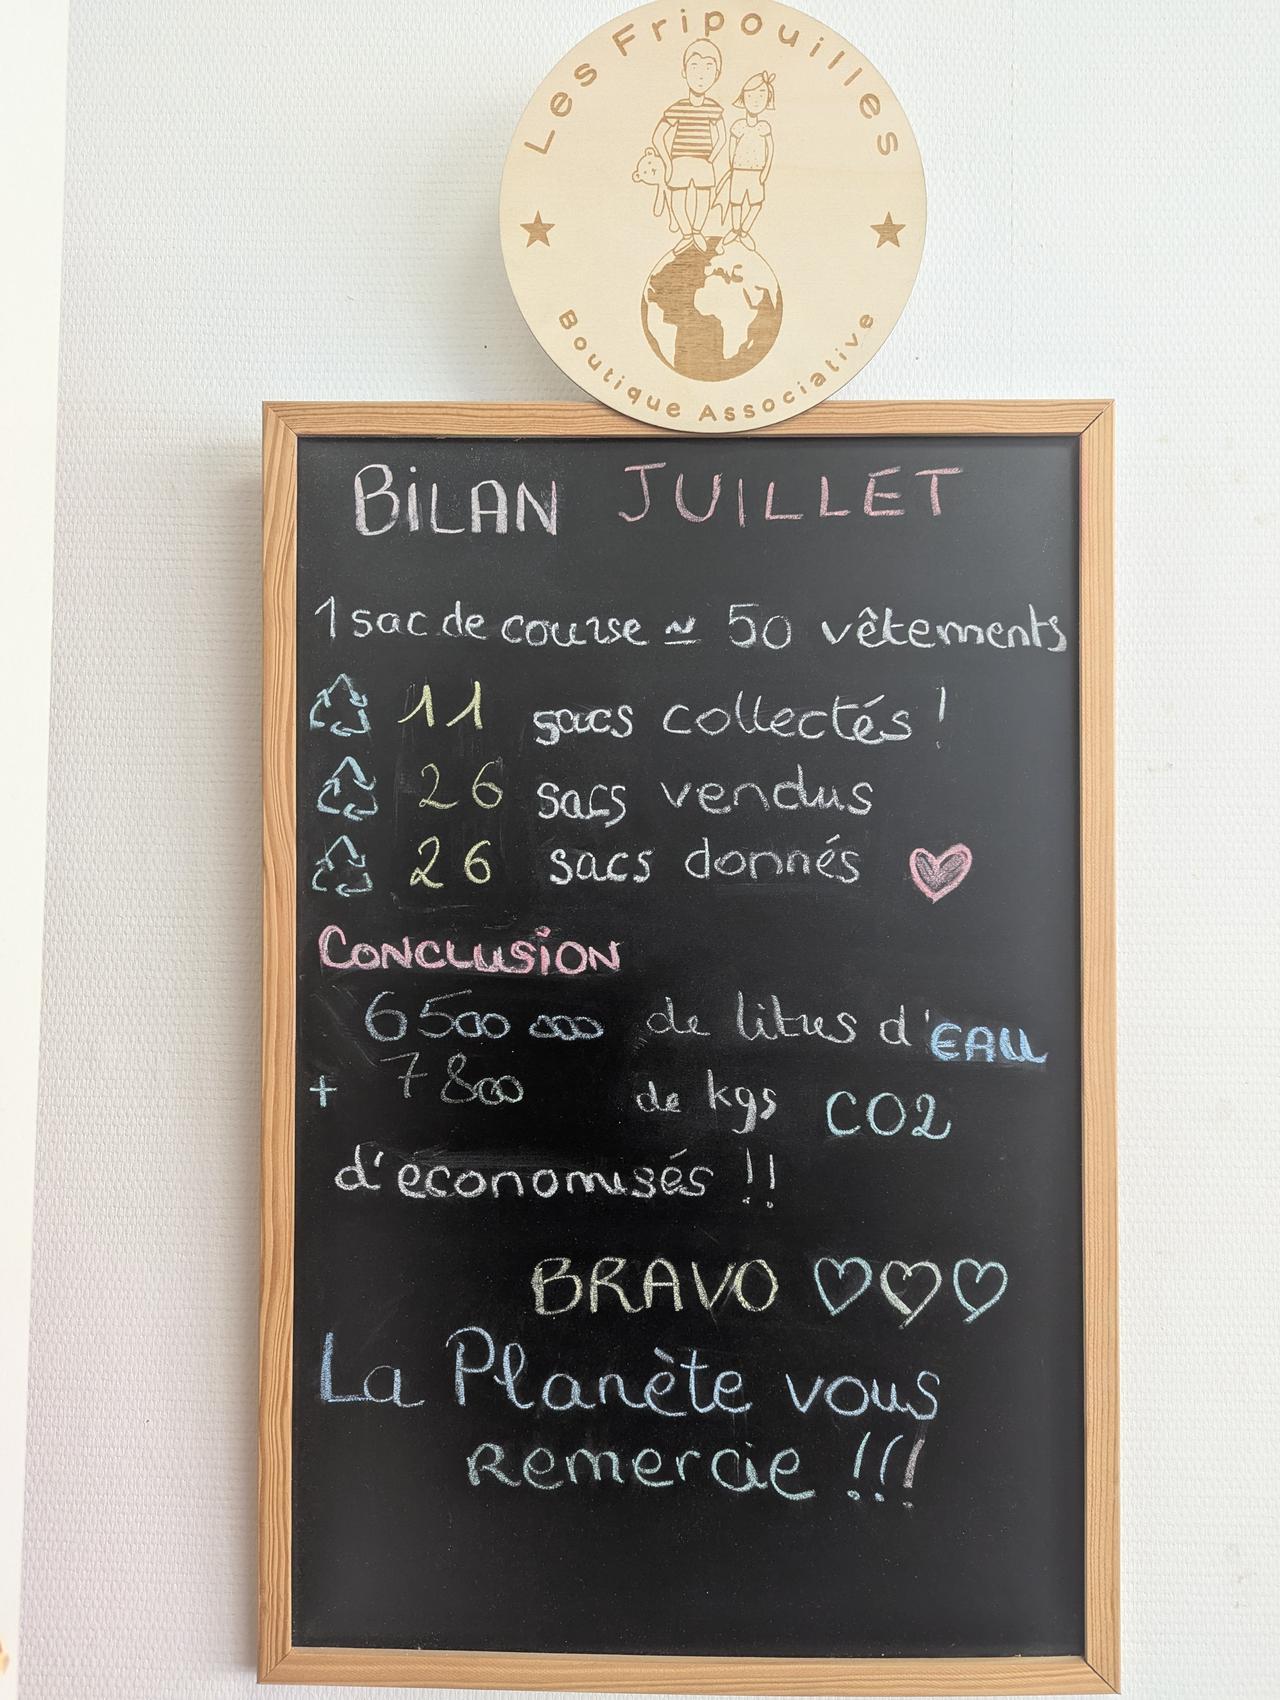 Les Fripouilles
Boutique Associative
BiLAN JUILLET
1 sac de course ≃ 50 vêtements
11 sacs collectés !
26 sacs vendus
26 sacs donnés
CONCLUSiON
6500 000 de litres d'EAU
+ 7800 de kgs CO2
d'économisés !!
BRAVO
La Planète vous
Remercie !!!